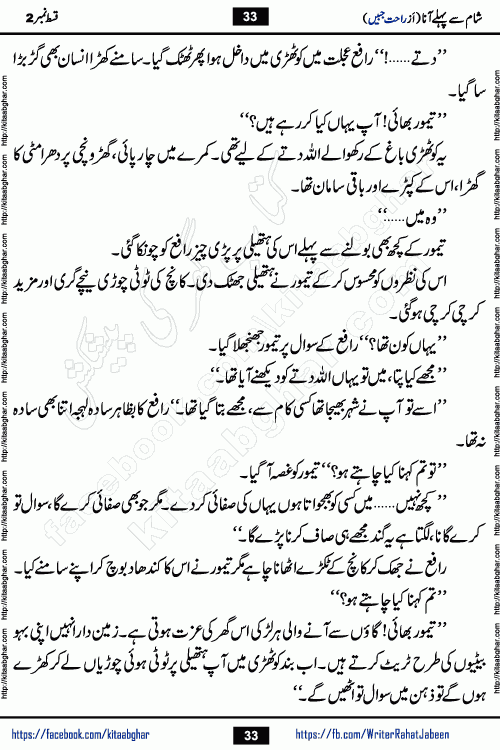 شام سے پہلے آنا (از راحت جبیں)
33
قسط نمبر 2
’’دتے......!‘‘ رافع عجلت میں کوٹھڑی میں داخل ہوا پھر ٹھٹک گیا۔ سامنے کھڑا انسان بھی گڑبڑا
سا گیا۔
’’تیمور بھائی! آپ یہاں کیا کر رہے ہیں؟‘‘
یہ کوٹھڑی باغ کے رکھوالے اللہ دتے کے لیے تھی۔ کمرے میں چارپائی، گھڑونچی پر دھرا مٹی کا
گھڑا، اس کے کپڑے اور باقی سامان تھا۔
’’وہ میں......‘‘
تیمور کے کچھ بھی بولنے سے پہلے اس کی ہتھیلی پر پڑی چیز رافع کو چونکا گئی۔
اس کی نظروں کو محسوس کر کے تیمور نے ہتھیلی جھٹک دی۔ کانچ کی ٹوٹی چوڑی نیچے گری اور مزید
کرچی کرچی ہو گئی۔
’’یہاں کون تھا؟‘‘ رافع کے سوال پر تیمور جھنجھلا گیا۔
’’مجھے کیا پتا، میں تو یہاں اللہ دتے کو دیکھنے آیا تھا۔‘‘
’’اسے تو آپ نے شہر بھیجا تھا کسی کام سے، مجھے بتا گیا تھا۔‘‘ رافع کا بظاہر سادہ لہجہ اتنا بھی سادہ
نہ تھا۔
’’تو تم کہنا کیا چاہتے ہو؟‘‘ تیمور کو غصہ آ گیا۔
’’کچھ نہیں...... میں کسی کو بھجواتا ہوں یہاں کی صفائی کر دے۔ مگر جو بھی صفائی کرے گا، سوال تو
کرے گا نا، لگتا ہے یہ گند مجھے ہی صاف کرنا پڑے گا۔‘‘
رافع نے جھک کر کانچ کے ٹکڑے اٹھانا چاہے مگر تیمور نے اس کا کندھا دبوچ کر اپنے سامنے کیا۔
’’تم کہنا کیا چاہتے ہو؟‘‘
’’تیمور بھائی! گاؤں سے آنے والی ہر لڑکی اس گھر کی عزت ہوتی ہے۔ زمین دار انہیں اپنی بہو
بیٹیوں کی طرح ٹریٹ کرتے ہیں۔ اب بند کوٹھڑی میں آپ ہتھیلی پر ٹوٹی ہوئی چوڑیاں لے کر کھڑے
ہوں گے تو ذہن میں سوال تو اٹھیں گے۔‘‘
https://facebook.com/kitaabghar
33
https://fb.com/WriterRahatJabeen
http://kitaabghar.com